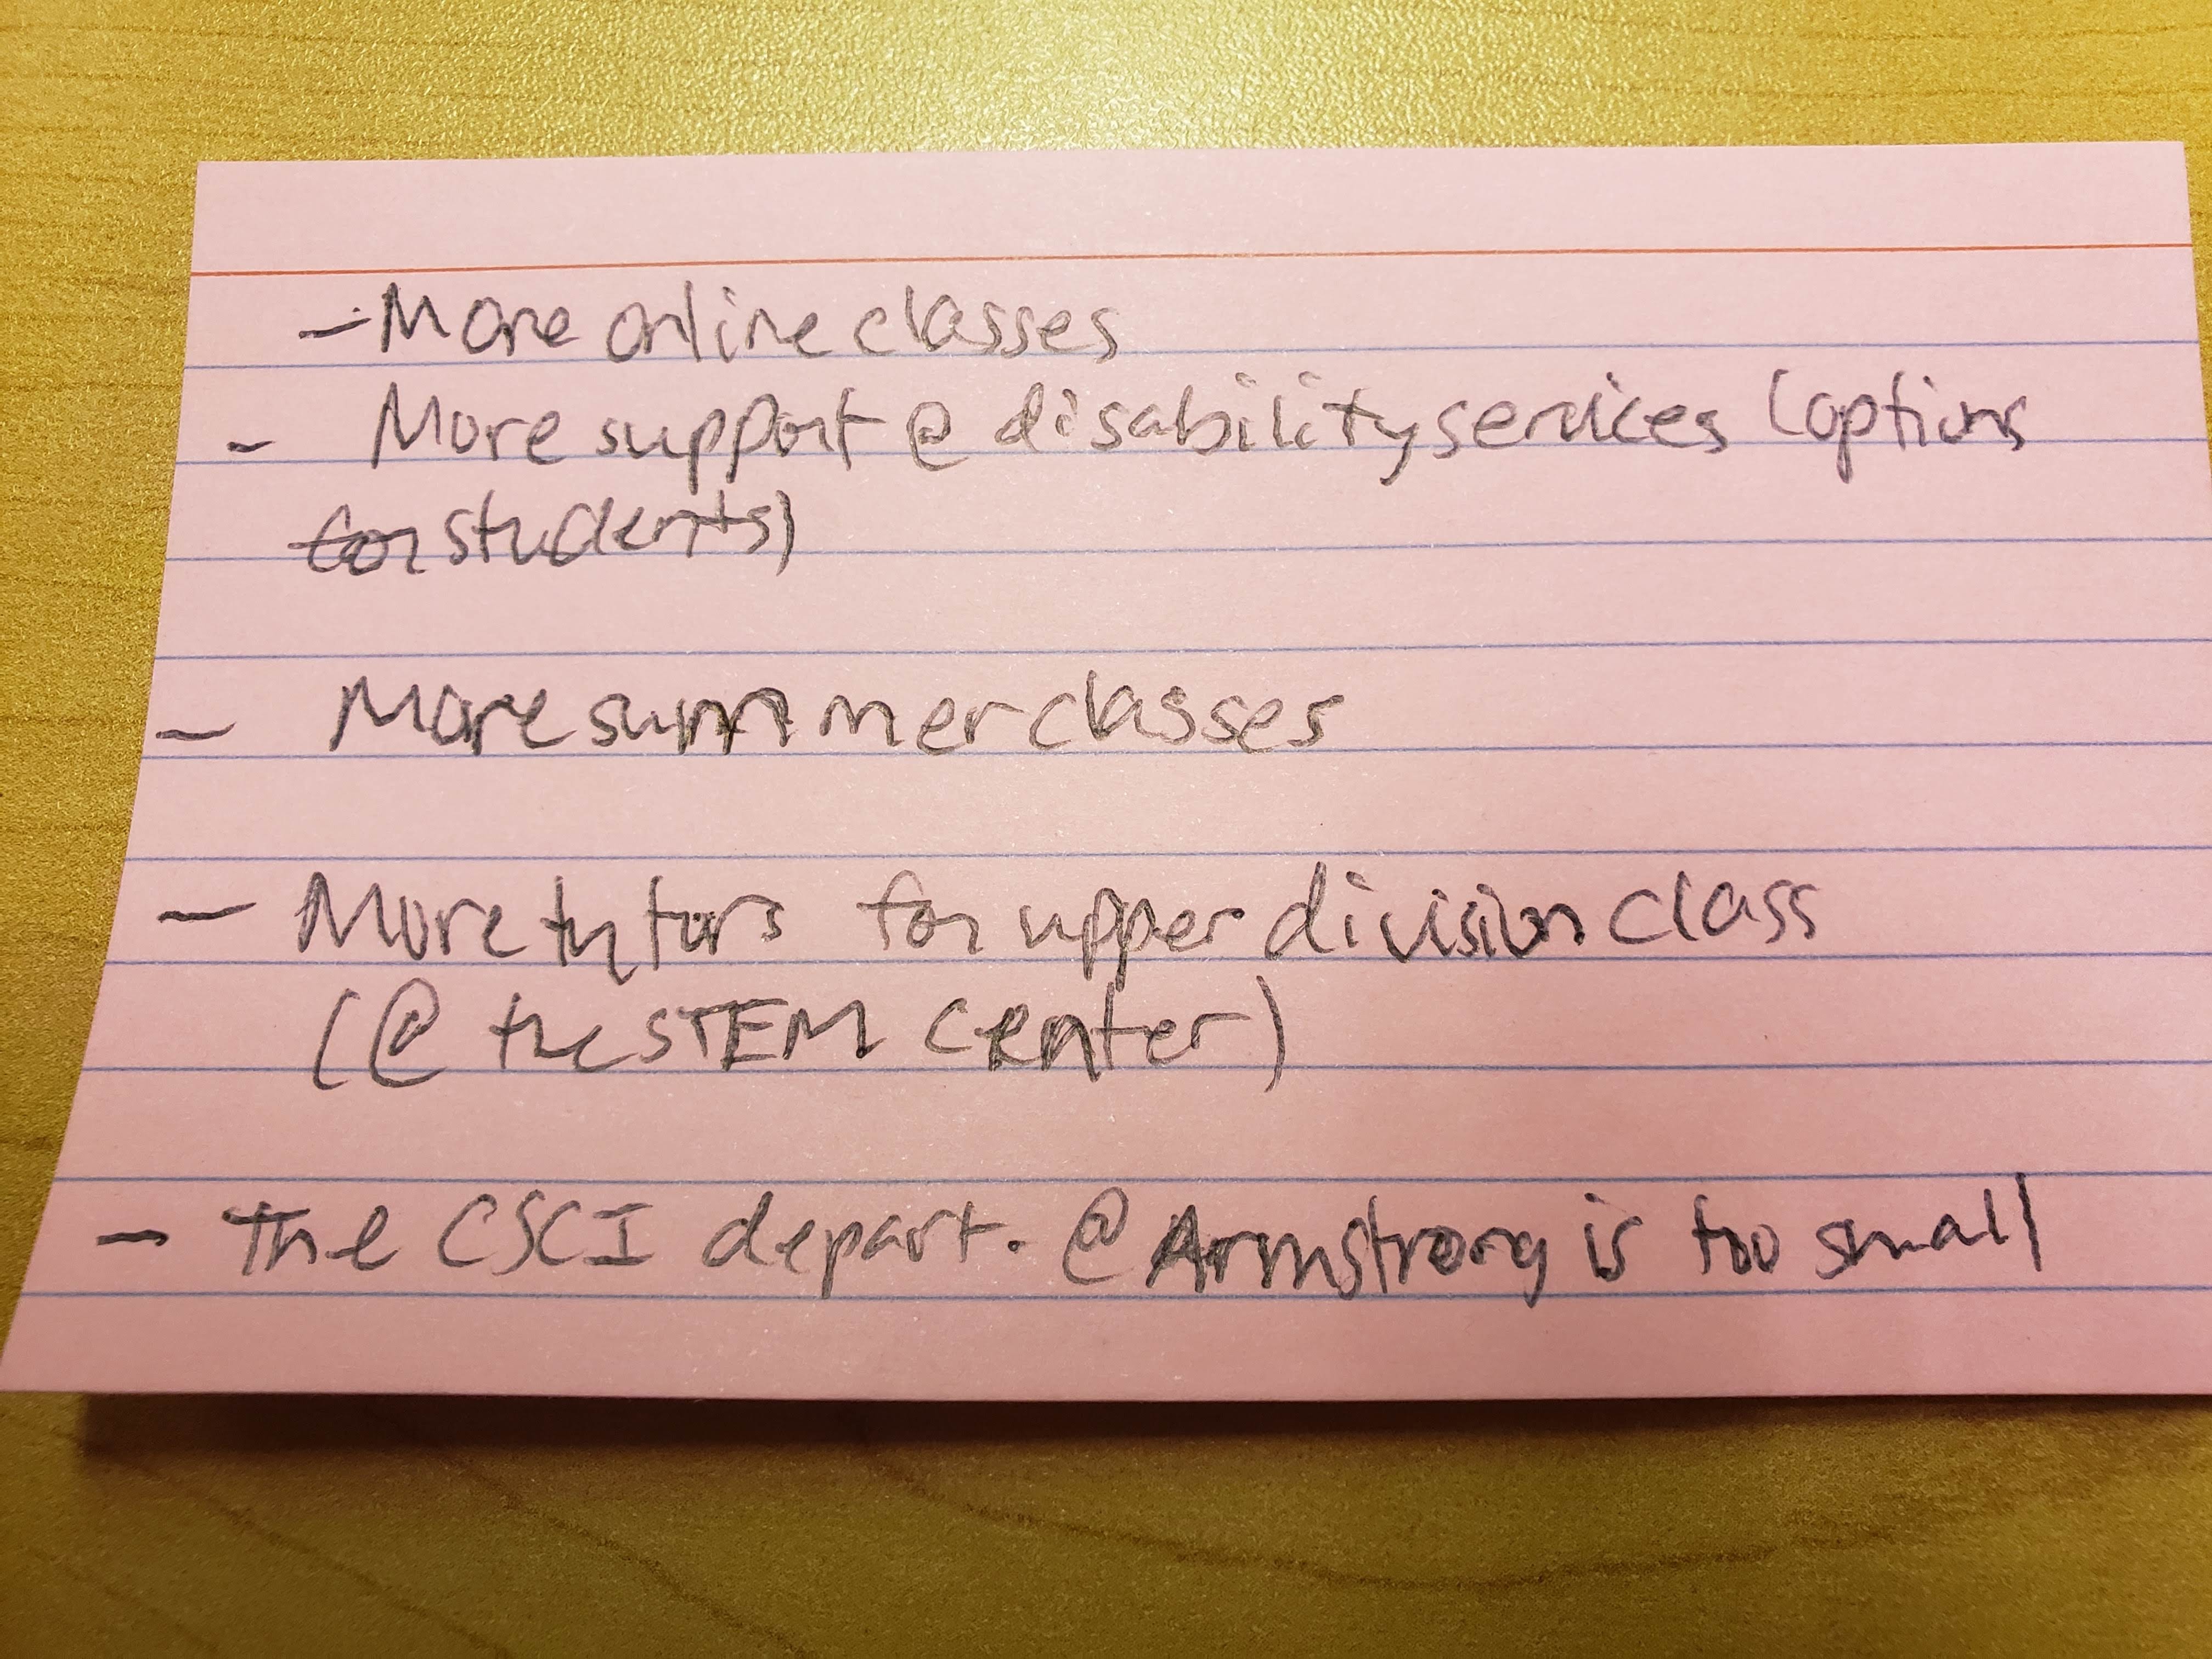 - More online classes
- More support @ disability services (options
for students)
- More summer classes
- More tutors for upper division class
(@ the STEM center)
- The CSCI depart. @ Armstrong is too small